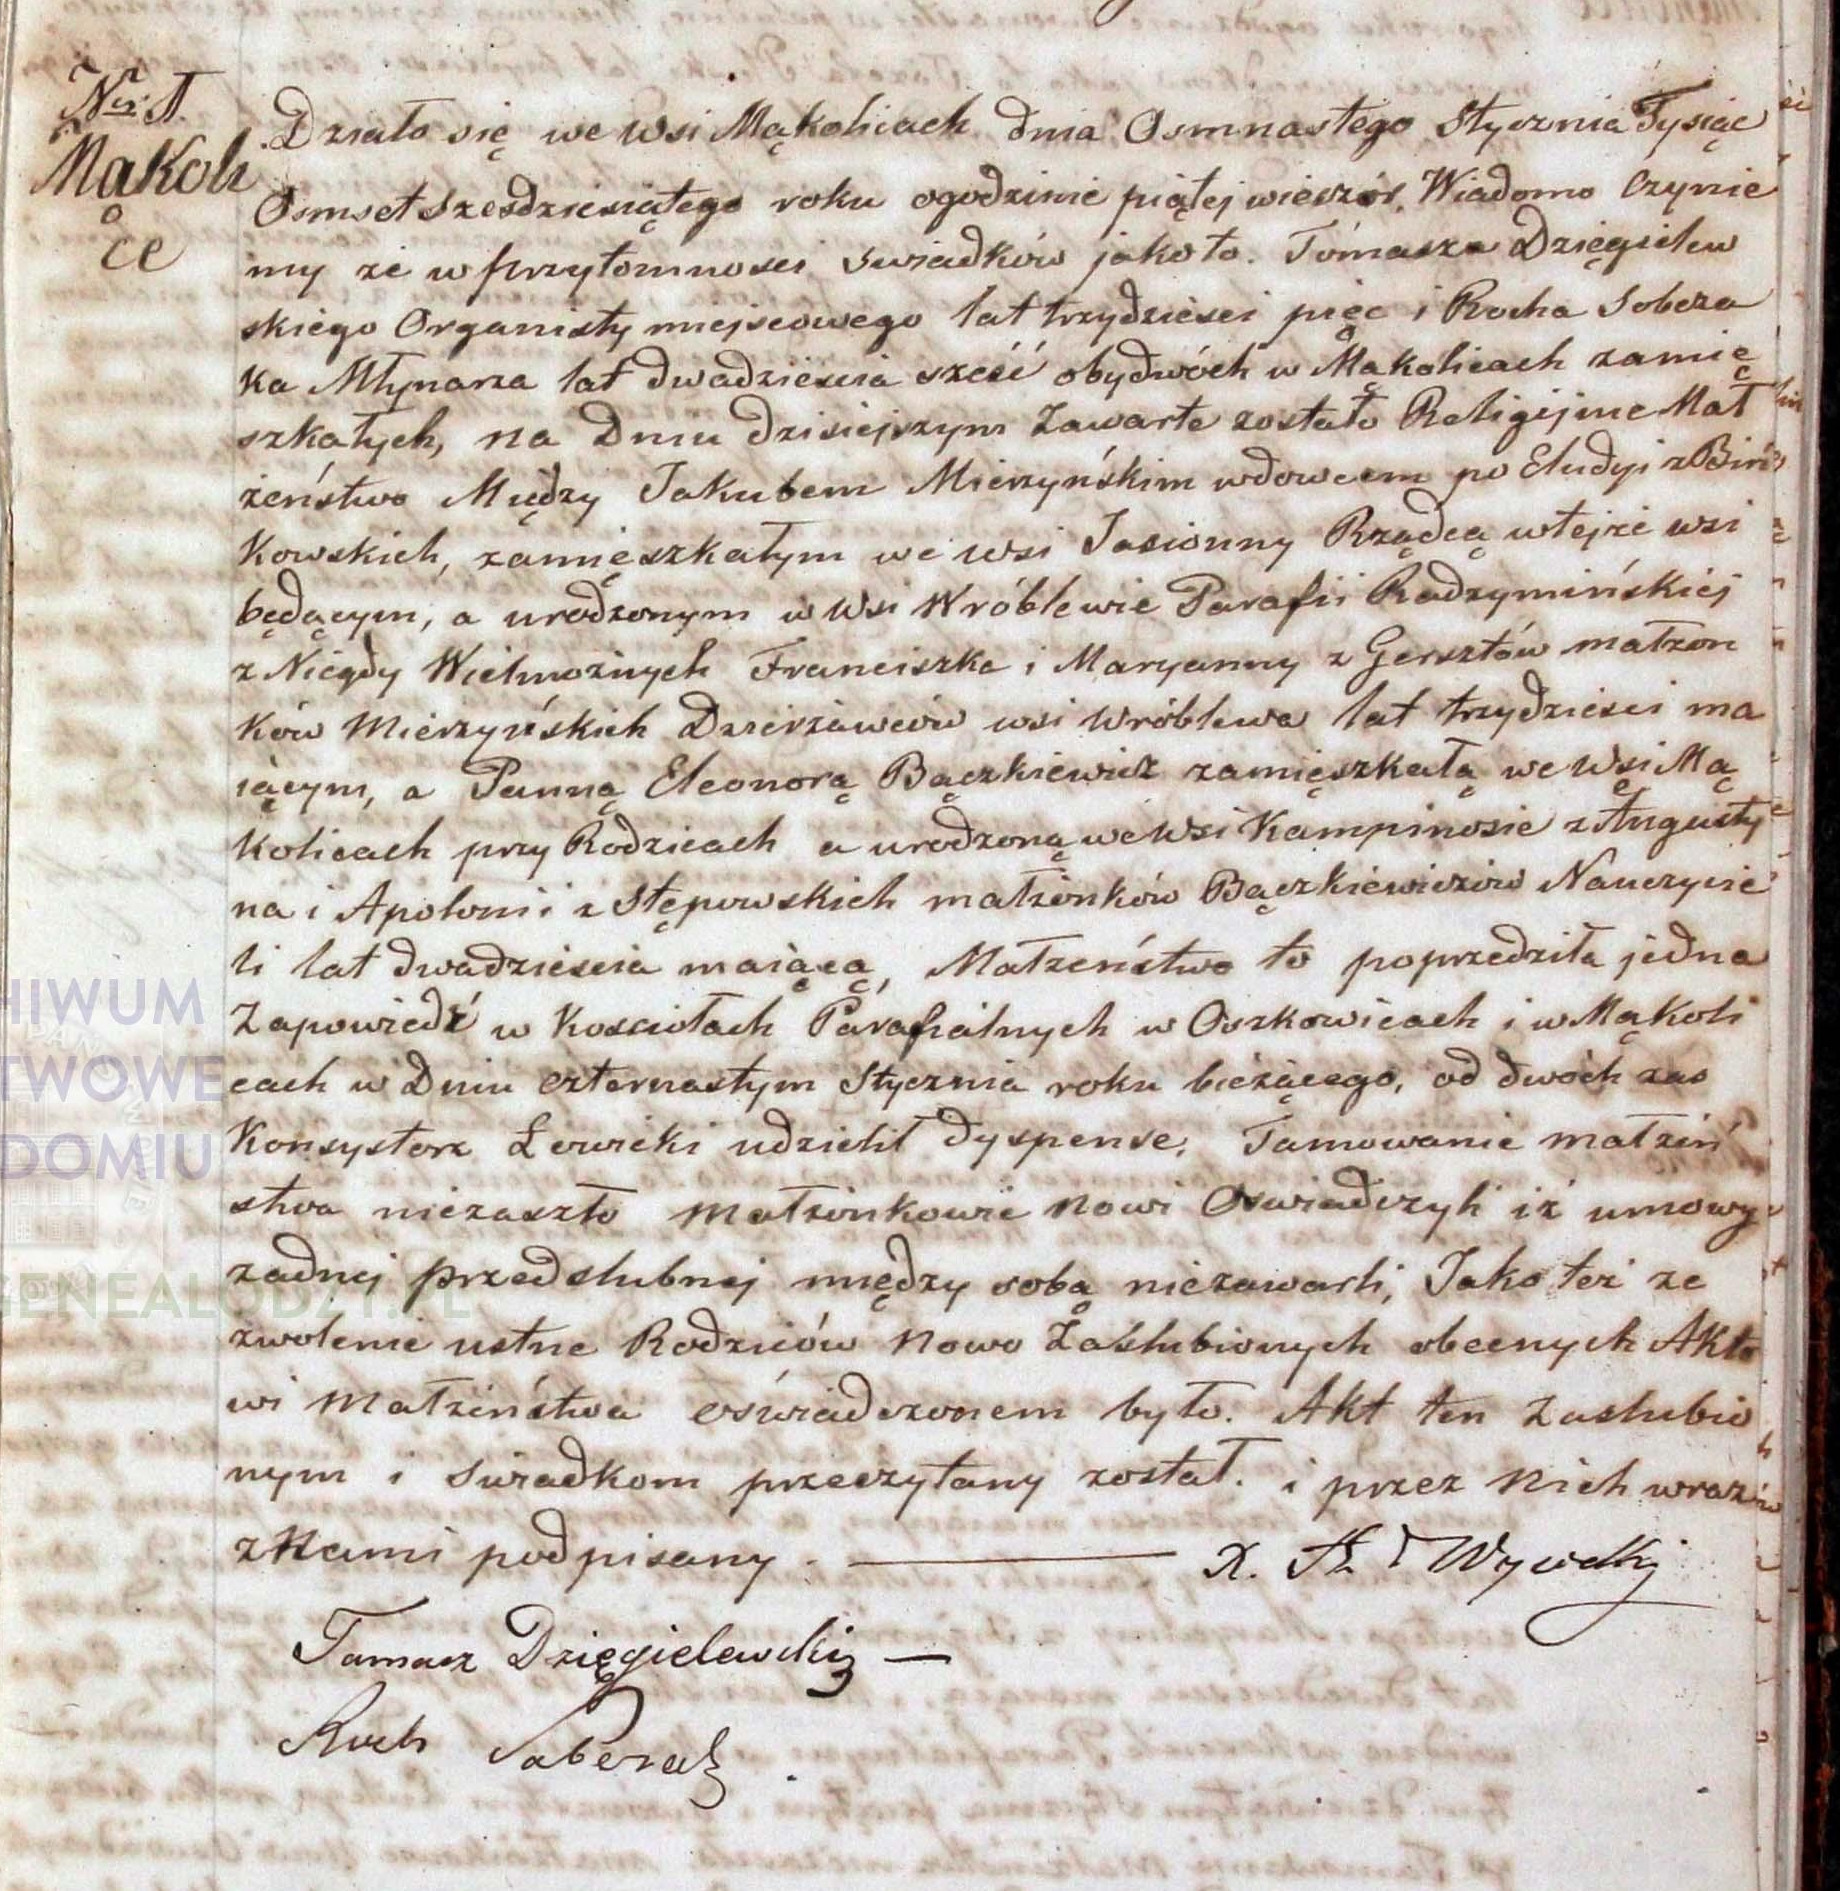 Nr 1.
Mąkoli
ce
Działo się we wsi Mąkolicach dnia Osmnastego Stycznia Tysiąc
Osmset szesdziesiątego roku o godzinie piątej wieczór. Wiadomo Czynie
my ze w przytomnosci swiadków jako to. Tómasza Dzięgielew
skiego Organisty miejscowego lat trzydziesci pięc i Rocha Sobcza
ka Młynarza lat dwadziescia sześć obydwóch w Mąkolicach zamię
szkałych, na Dniu dzisiejszym Zawarte zostało Religijne Mał
żeństwo Między Jakubem Mierzyńskim wdowcem po Eludyi z Biń
kowskich, zamięszkałym we wsi Jasionny Rządcą w tejże wsi
będącym, a urodzonym w Wsi Wróblewie Parafii Radzymińskiej
z Niegdy Wielmożnych Franciszka i Maryanny z Gersztów małżon
ków Mierzyńskich Dzierżawców wsi Wróblewa lat trzydziesci ma
iącym, a Panną Eleonorą Bączkiewicz zamięszkałą we Wsi Mą
kolicach przy Rodzicach a urodzoną we Wsi Kampinosie z Augusty
na i Apolonii z Stępowskich małżonków Bączkiewiczów Nauczycie
li lat dwadziescia maiącą, Małżeństwo to poprzedziła jedna
Zapowiedź w Kosciołach Parafialnych w Oszkowicach i w Mąkoli
cach w Dniu czternastym Stycznia roku bieżącego, od dwóch zas
Konsystorz Łowicki udzielił dyspense. Tamowanie małżeń
stwa niezaszło Małżonkowie nowi Oswiadczyli iż umowy
zadnej przedslubnej między sobą niezawarli, Jako też ze
zwolenie ustne Rodziców Nowo Zaślubionych obecnych Akto
wi Małżeństwa oświadczonem było. Akt ten Zaslubio
nym i Swiadkom przeczytany został. i przez Nich wraz
z Nami podpisany.
Tomasz Dzięgielewski
Roch Sobczak
HIWUM
TWOWE
DOMIU
GENEALODZY.PL